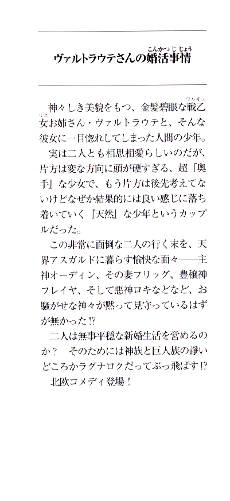 こんかつ じ じょう
ヴァルトラウテさんの婚活事情
神々しき美貌をもつ、金髪碧眼な戦乙
女お姉さん・ヴァルトラウテと、そんな
彼女に一目惚れしてしまった人間の少年。
実は二人とも相思相愛らしいのだが、
片方は変な方向に頭が硬すぎる、超『奥
手』な少女で、もう片方は後先考えてな
いけどなぜか結果的には良い感じに落ち
着いていく『天然』な少年というカップ
ルだった。
この非常に面倒な二人の行く末を、天
界アスガルドに暮らす愉快な面々――主
神オーディン、その妻フリッグ、豊穣神
フレイヤ、そして悪神ロキなどなど、お
騒がせな神々が黙って見守っているはず
が無かった!?
二人は無事平穏な新婚生活を営めるの
か？　そのためには神族と巨人族の諍い
どころかラグナロクだってぶっ飛ばす!?
北欧コメディ登場！